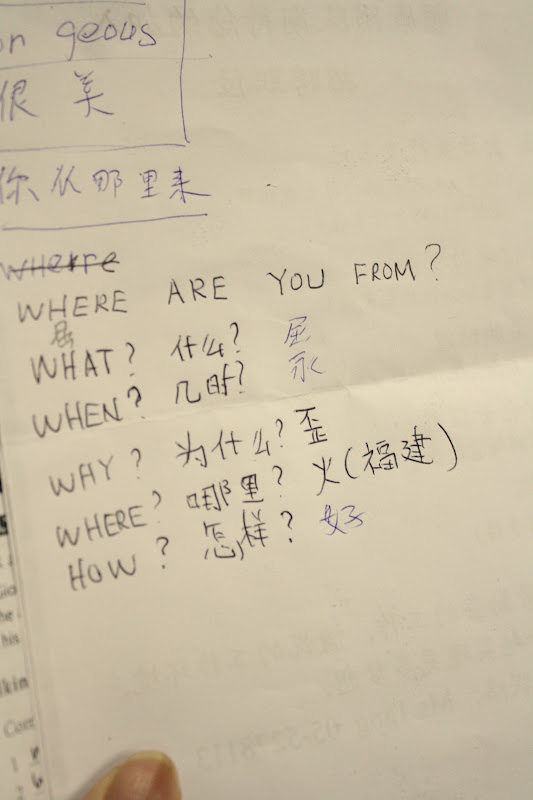 geous
很 美
你从那里来
WHERE ARE YOU FROM?
WHAT? 什么?
WHEN? 几时? 永
WAY? 为什么? 歪
WHERE? 哪里? 火(福建)
HOW? 怎样? 好
his
lkin
Cont
1
2